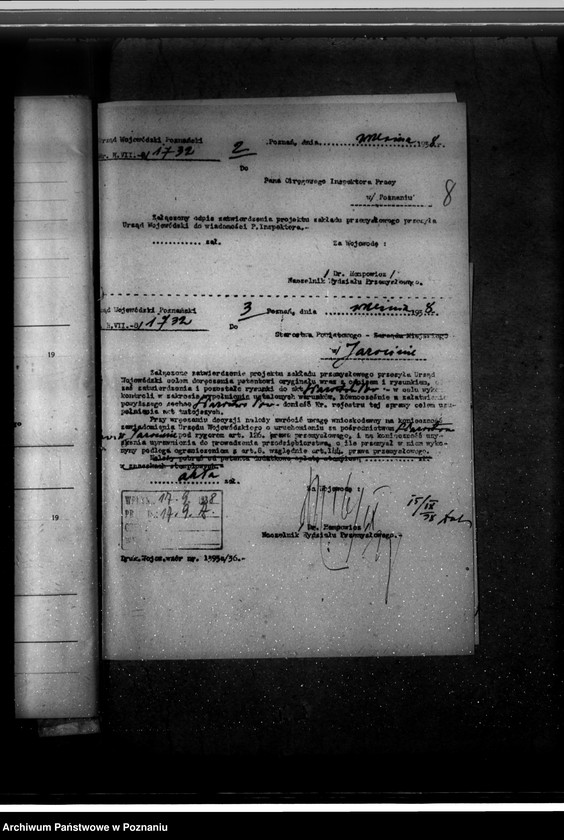 Urząd Wojewódzki Poznański
Nr. H.VII.-8/1732
2
Poznań, dnia września 1938 r.
Do
Pana Okręgowego Inspektora Pracy
w/ Poznaniu
8
Załączony odpis zatwierdzenia projektu zakładu przemysłowego przesyła
Urząd Wojewódzki do wiadomości P.Inspektora.-
zał.
Za Wojewodę :
/ Dr. Mompowicz /
Naczelnik Wydziału Przemysłowego.
Urząd Wojewódzki Poznański
H.VII.-8/1732
3
Poznań, dnia września 1938.
Do
Starostwa Powiatowego - Zarządu Miejskiego
w/ Jarocinie
Załączone zatwierdzenie projektu zakładu przemysłowego przesyła Urząd
Wojewódzki celem doręczenia petentowi oryginału wraz z opisem i rysunkiem,
zaś zatwierdzenia i pozostałe rysunki do akt Starostwa - w celu wyk.
kontroli w zakresie wypełnienia ustalonych warunków. Równocześnie z załatwie
powyższego zechce Starostwo donieść Nr. rejestru tej sprawy celem uzu-
pełnienia akt tutejszych.
Przy wręczaniu decyzji należy zwrócić uwagę wnioskodawcy na konieczność
zawiadomienia Urzędu Wojewódzkiego o uruchomieniu za pośrednictwem Starostwa
w Jarocinie pod rygorem art. 126. prawa przemysłowego, i na konieczność uzy-
skania uprawnienia do prowadzenia przedsiębiorstwa, o ile przemysł w nim wyko-
nany podlega ograniczeniom z art.8. względnie art.144. prawa przemysłowego.
Należy pobrać od petenta dodatkowo opłatę stemplową
w znaczkach stemplowych.
akta zał.
Za Wojewodę :
WPŁYN. 17.9.1938
17.9.
Dr. Mompowicz
Naczelnik Wydziału Przemysłowego.-
15/IX
38
Druk.Wojew.wzór nr. 1393a/36.-
19
19
Archiwum Państwowe w Poznaniu